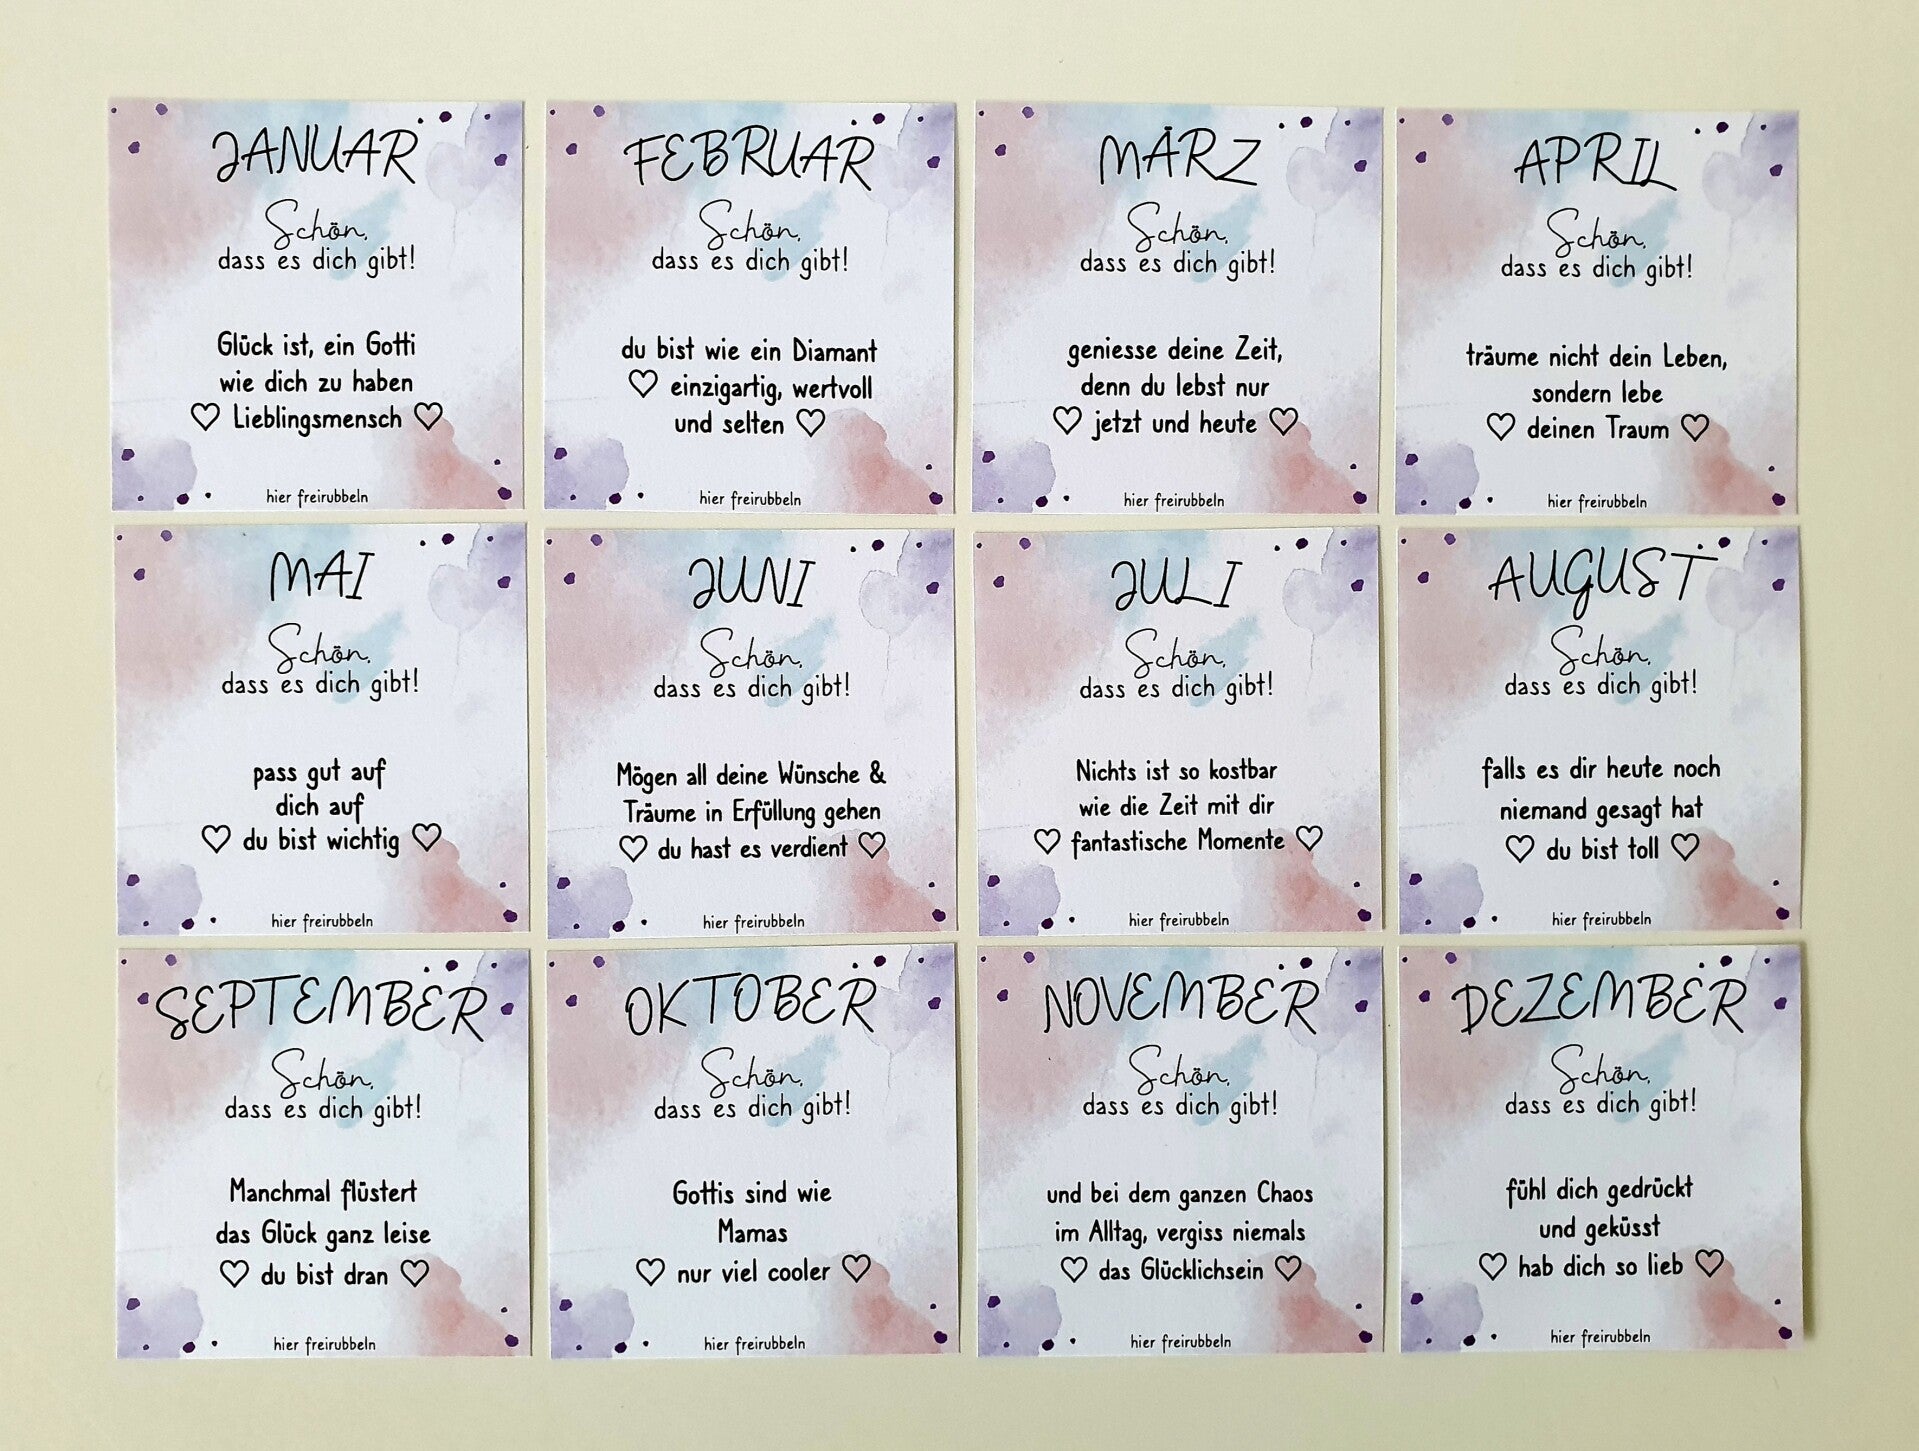 JANUAR
Schön,
dass es dich gibt!
Glück ist, ein Gotti
wie dich zu haben
♡ Lieblingsmensch ♡
hier freirubbeln
FEBRUAR
Schön,
dass es dich gibt!
du bist wie ein Diamant
♡ einzigartig, wertvoll
und selten ♡
hier freirubbeln
MÄRZ
Schön,
dass es dich gibt!
geniesse deine Zeit,
denn du lebst nur
♡ jetzt und heute ♡
hier freirubbeln
APRIL
Schön,
dass es dich gibt!
träume nicht dein Leben,
sondern lebe
♡ deinen Traum ♡
hier freirubbeln
MAI
Schön,
dass es dich gibt!
pass gut auf
dich auf
♡ du bist wichtig ♡
hier freirubbeln
JUNI
Schön,
dass es dich gibt!
Mögen all deine Wünsche &
Träume in Erfüllung gehen
♡ du hast es verdient ♡
hier freirubbeln
JULI
Schön,
dass es dich gibt!
Nichts ist so kostbar
wie die Zeit mit dir
♡ fantastische Momente ♡
hier freirubbeln
AUGUST
Schön,
dass es dich gibt!
falls es dir heute noch
niemand gesagt hat
♡ du bist toll ♡
hier freirubbeln
SEPTEMBER
Schön,
dass es dich gibt!
Manchmal flüstert
das Glück ganz leise
♡ du bist dran ♡
hier freirubbeln
OKTOBER
Schön,
dass es dich gibt!
Gottis sind wie
Mamas
♡ nur viel cooler ♡
hier freirubbeln
NOVEMBER
Schön,
dass es dich gibt!
und bei dem ganzen Chaos
im Alltag, vergiss niemals
♡ das Glücklichsein ♡
hier freirubbeln
DEZEMBER
Schön,
dass es dich gibt!
fühl dich gedrückt
und geküsst
♡ hab dich so lieb ♡
hier freirubbeln